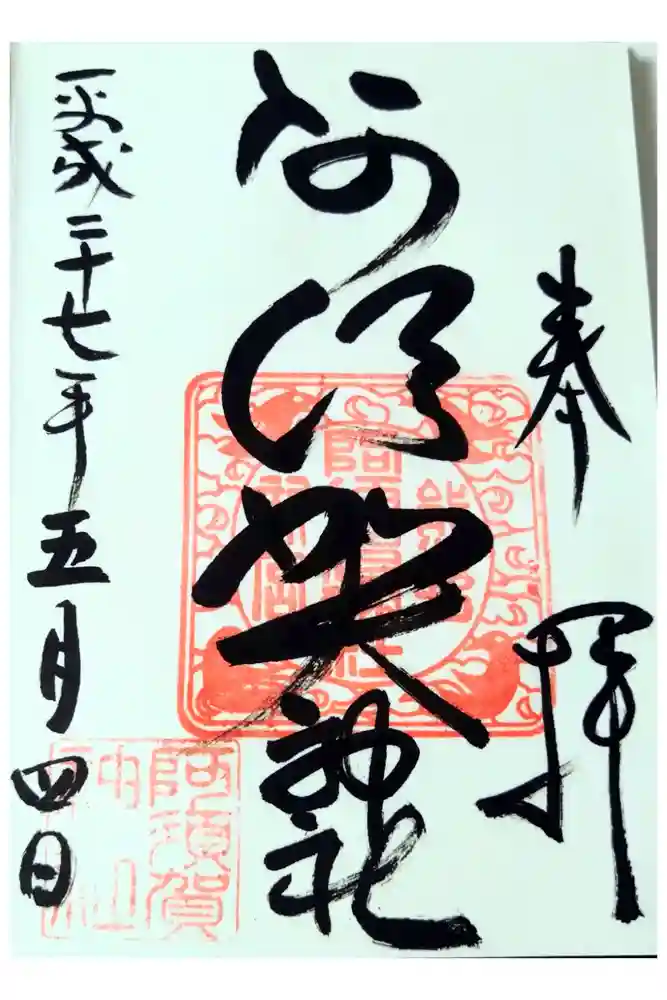 奉拝
阿須賀神社
平成二十七年五月四日
阿須賀
神社